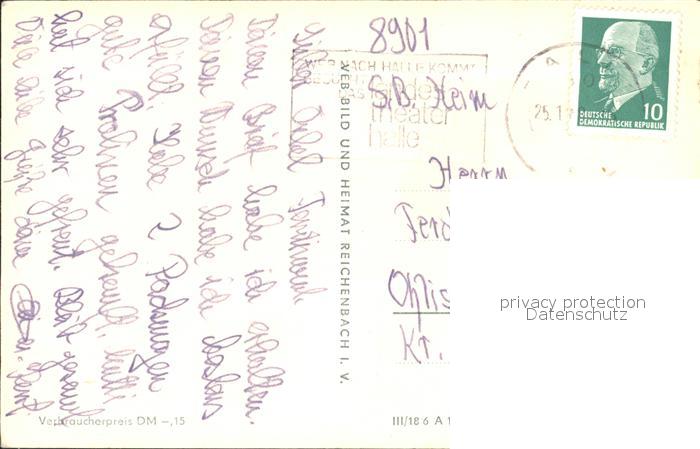 Lieber Onkel Ferdinand
Deinen Brief habe ich erhalten.
Deinen Wunsch habe ich bestens
erfüllt. Habe 2 Packungen
gute Pralinen gekauft. Mutti
hat sich sehr gefreut. Bleibt gesund
Viele liebe Grüße Deine
VEB BILD UND HEIMAT REICHENBACH I. V.
Verbraucherpreis DM –,15
WER NACH HALLE KOMMT
BESUCHT
DAS
landes
theater
halle
25.1
10
DEUTSCHE
DEMOKRATISCHE REPUBLIK
8901
S.B. Heim
Herrn
Ferd
Ohlis
Kr.
III/18 6 A 1
privacy protection
Datenschutz